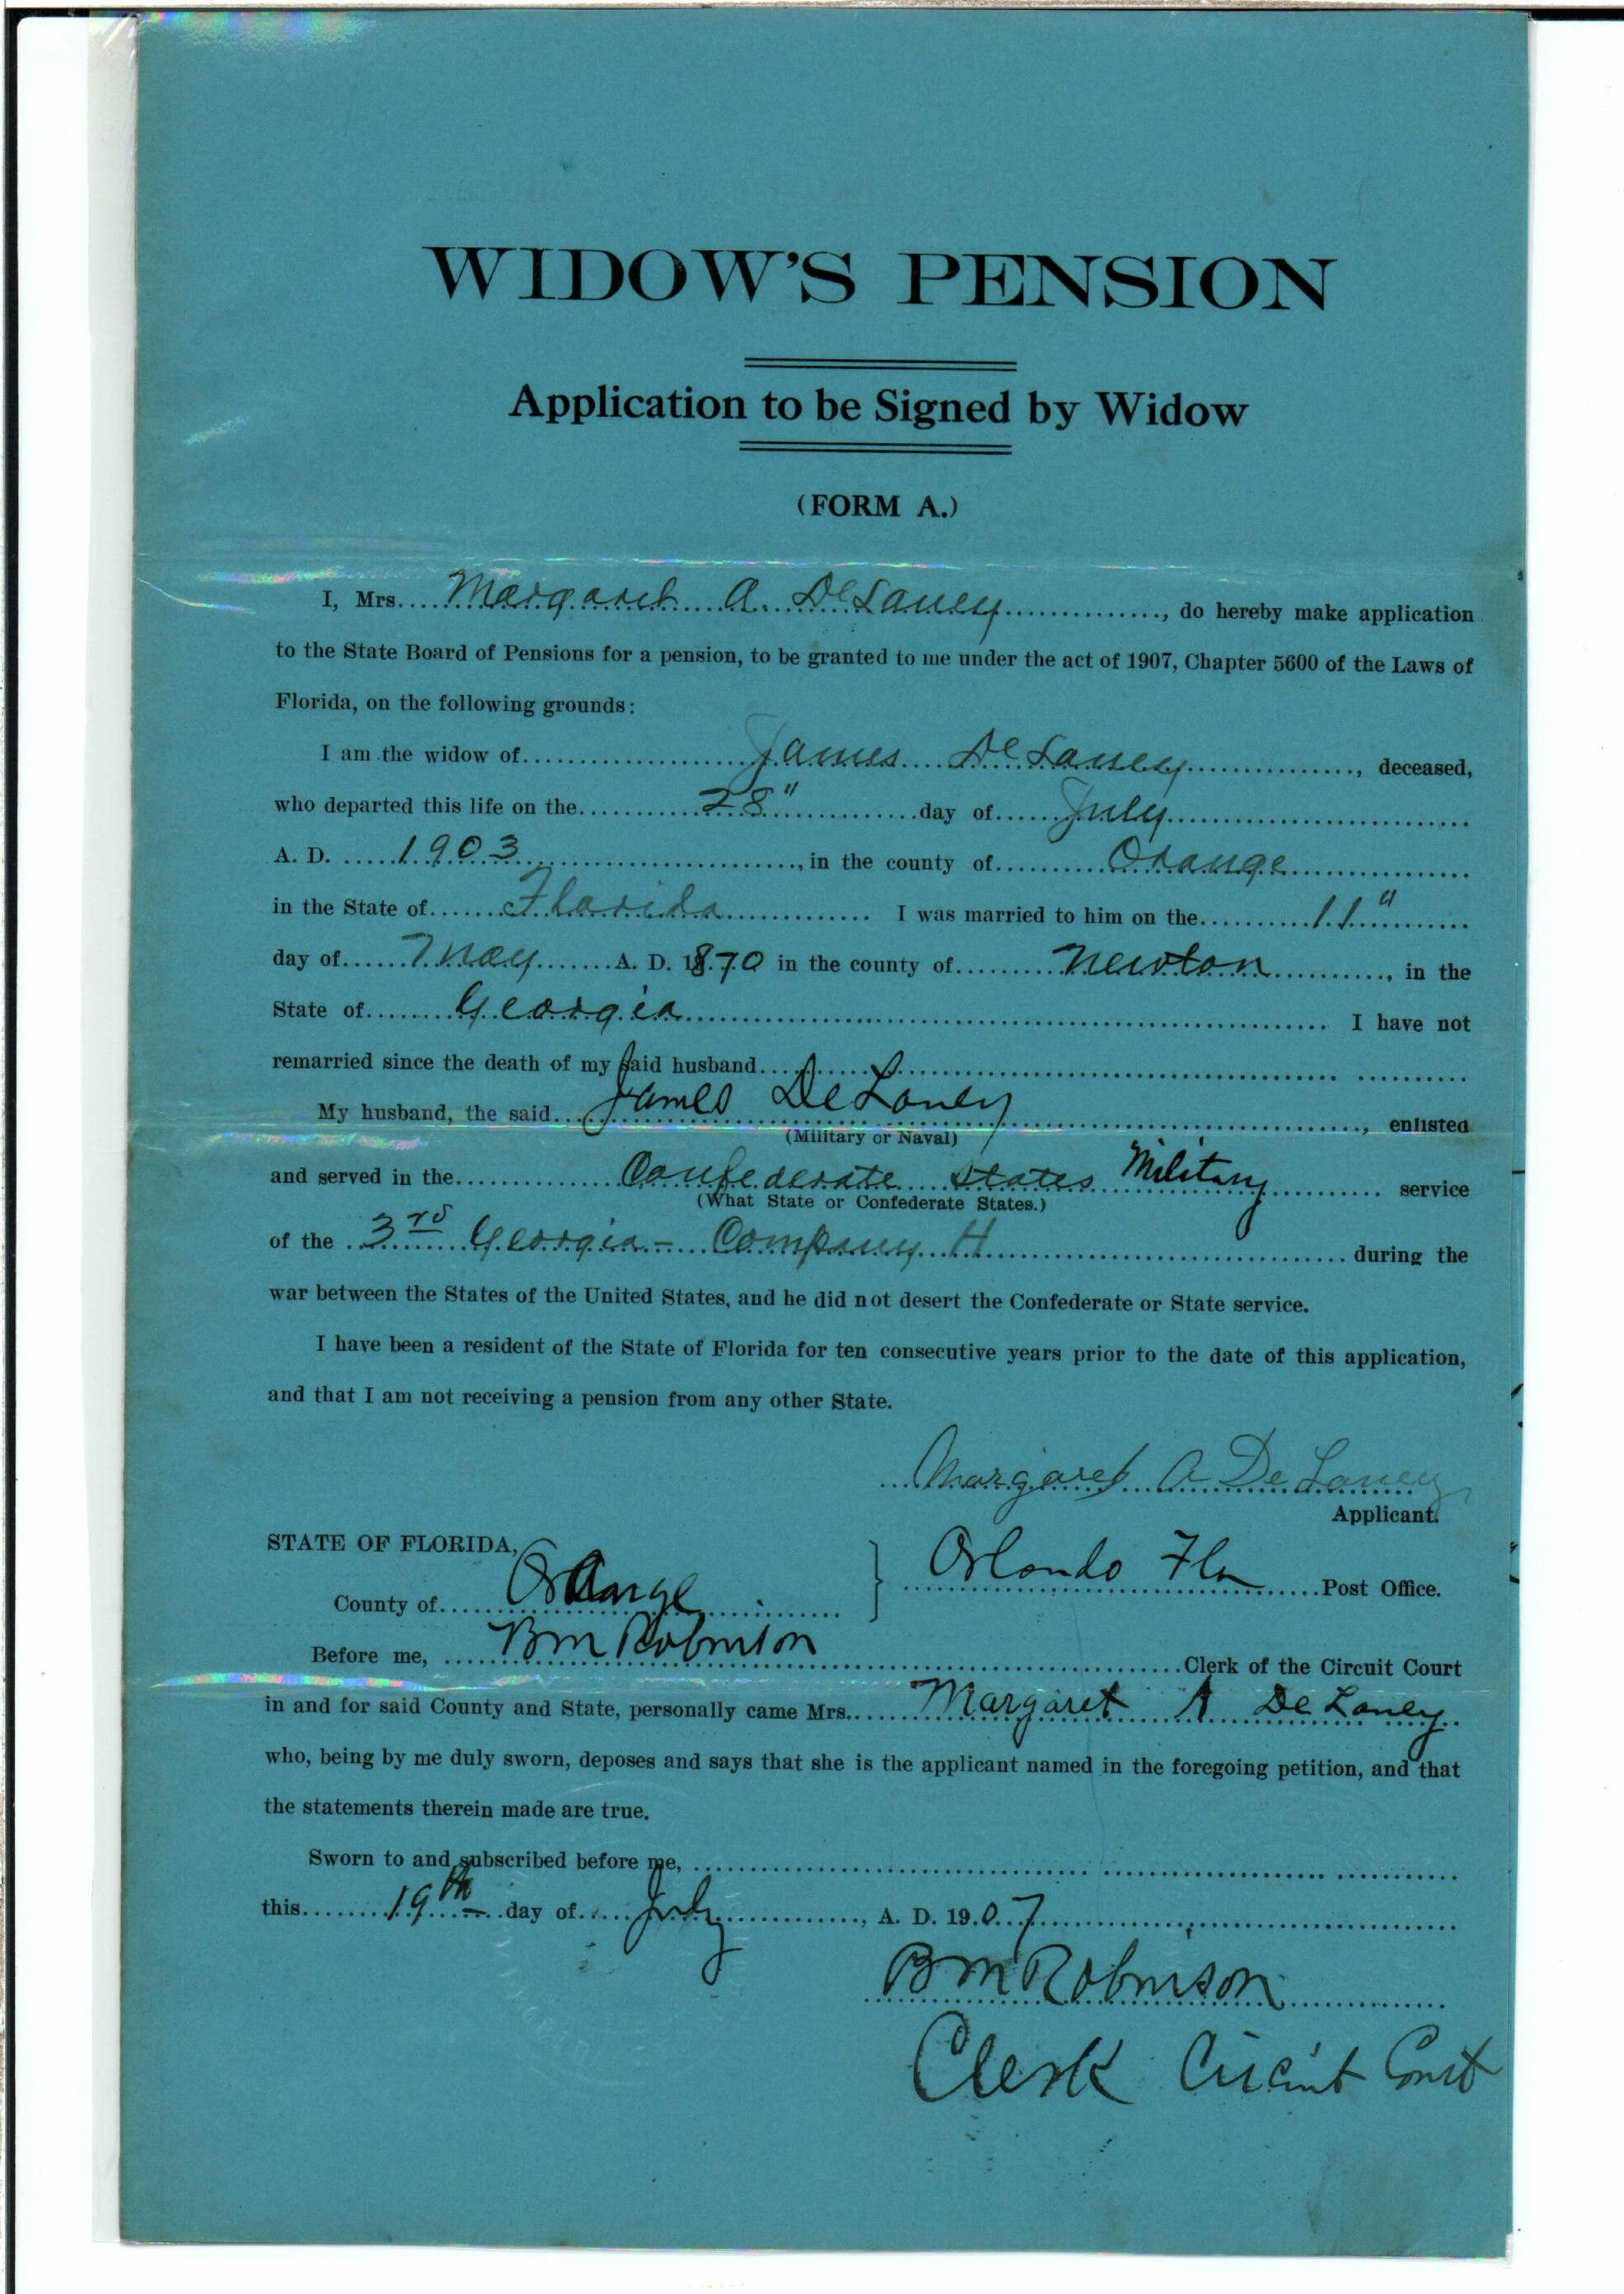 WIDOW'S PENSION
Application to be Signed by Widow
(FORM A.)
I, Mrs. Margaret A. DeLaney, do hereby make application
to the State Board of Pensions for a pension, to be granted to me under the act of 1907, Chapter 5600 of the Laws of
Florida, on the following grounds:
I am the widow of James DeLaney, deceased,
who departed this life on the 28" day of July
A. D. 1903, in the county of Orange
in the State of Florida I was married to him on the 11"
day of May A. D. 1870 in the county of Newton, in the
State of Georgia I have not
remarried since the death of my said husband
My husband, the said James DeLaney, enlisted
(Military or Naval)
and served in the Confederate States Military service
(What State or Confederate States.)
of the 3rd Georgia - Company H during the
war between the States of the United States, and he did not desert the Confederate or State service.
I have been a resident of the State of Florida for ten consecutive years prior to the date of this application,
and that I am not receiving a pension from any other State.
Margaret A DeLaney
Applicant.
STATE OF FLORIDA,
County of Orange
Orlando Fla Post Office.
Before me, BM Robinson Clerk of the Circuit Court
in and for said County and State, personally came Mrs. Margaret A DeLaney
who, being by me duly sworn, deposes and says that she is the applicant named in the foregoing petition, and that
the statements therein made are true.
Sworn to and subscribed before me,
this 19th day of July, A. D. 1907
BM Robinson
Clerk Circuit Court